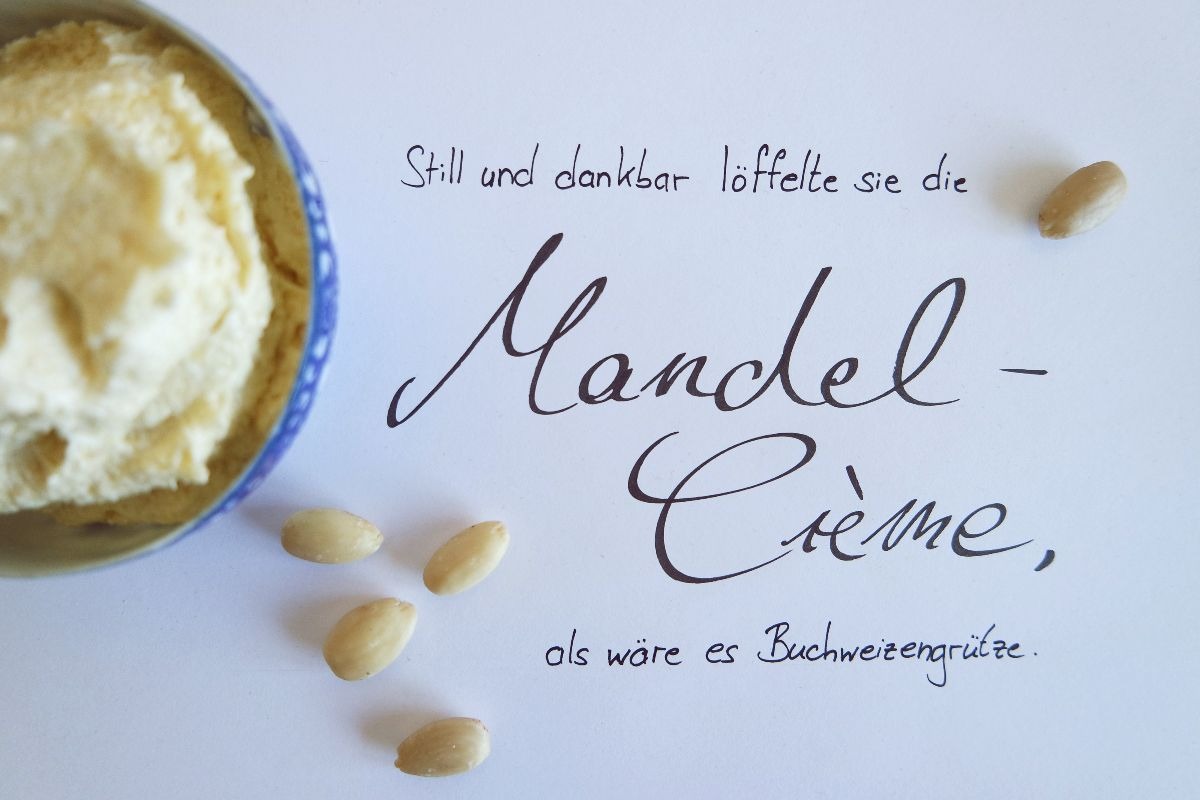 Still und dankbar löffelte sie die
Mandel-
Crème,
als wäre es Buchweizengrütze.